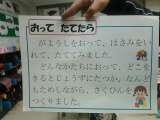 おって たてたら
がようしをおって、はさみをい
れて、たててみました。
どんなかたちにおって、どこを
きるとじょうずにたつか、なんど
もためしながら、さくひんを
つくりました。